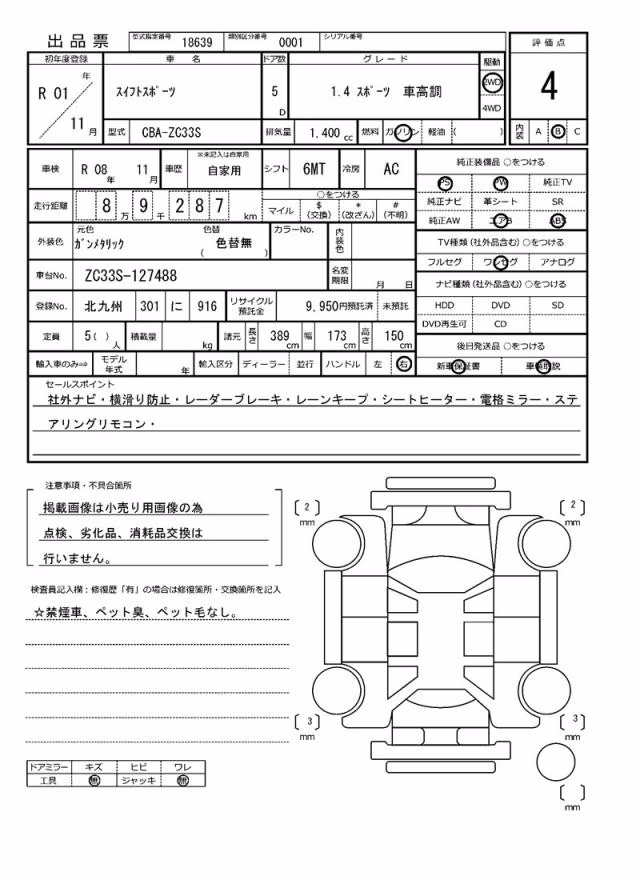 出品票
型式指定番号 18639 類別区分番号 0001 シリアル番号
評価点
4
初年度登録 車名 ドア数 グレード 駆動
R 01 年 11 月
スイフトスポーツ 5 D 1.4 スポーツ 車高調 2WD 4WD
型式 CBA-ZC33S 排気量 1.400 cc 燃料 ガソリン 軽油 ( )
内装 A B C
車検 R 08 年 11 月 車歴 ※未記入は自家用 自家用 シフト 6MT 冷房 AC
走行距離 8 万 9 千 2 8 7 km
○をつける
マイル $ (交換) * (改ざん) # (不明)
外装色 元色 ガンメタリック 色替 ( 色替無 ) カラーNo. 内装色
車台No. ZC33S-127488 名変期限 月 日
登録No. 北九州 301 に 916 リサイクル預託金 9,950円預託済 未預託
定員 5( ) 人 積載量 kg 諸元 長さ 389 cm 幅 173 cm 高さ 150 cm
輸入車のみ⇒ モデル年式 年 輸入区分 ディーラー 並行 ハンドル 左 右
純正装備品 ○をつける
PS PW 純正TV
純正ナビ 革シート SR
純正AW エアB ABS
TV種類(社外品含む) ○をつける
フルセグ ワンセグ アナログ
ナビ種類(社外品含む) ○をつける
HDD DVD SD
DVD再生可 CD
後日発送品 ○をつける
新車保証書 車輌取説
セールスポイント
社外ナビ・横滑り防止・レーダーブレーキ・レーンキープ・シートヒーター・電格ミラー・ステ
アリングリモコン・
注意事項・不具合箇所
掲載画像は小売り用画像の為
点検、劣化品、消耗品交換は
行いません。
検査員記入欄:修復歴「有」の場合は修復箇所・交換箇所を記入
☆禁煙車、ペット臭、ペット毛なし。
[2] mm [2] mm
[3] mm [3] mm
[ ] mm
ドアミラー キズ ヒビ ワレ
工具 無 ジャッキ 無